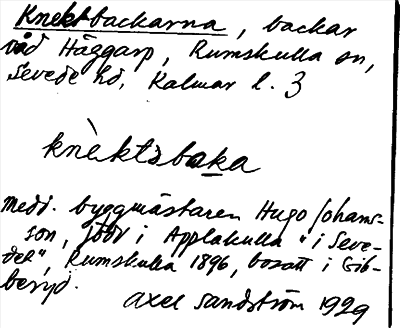 Knektbackarna, backar
vid Häggarp, Rumskulla sn,
Sevede hd, Kalmar l. 3
knèktsbaka
medd. byggmästaren Hugo Johans-
son, född i Applakulla "i Seve-
det", Rumskulla 1896, bosatt i Gib-
beryd.
Axel Sandström 1929